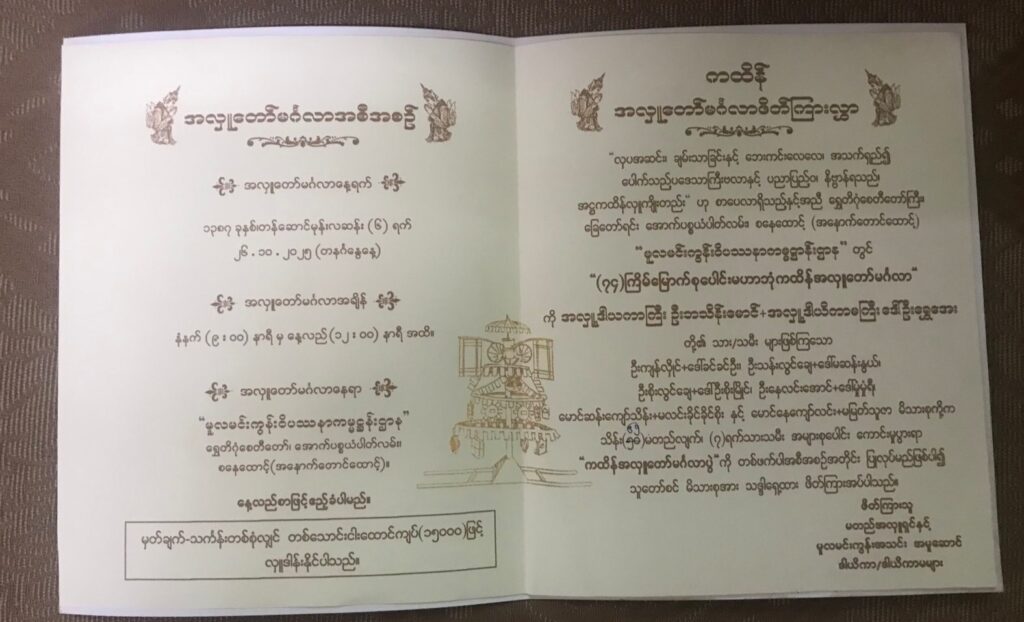 အလှူတော်မင်္ဂလာအစီအစဉ်
အလှူတော်မင်္ဂလာနေ့ရက်
၁၃၈၇ ခုနှစ်၊ တန်ဆောင်မုန်းလဆန်း (၆) ရက်
၂၆ . ၁၀ . ၂၀၂၅ (တနင်္ဂနွေနေ့)
အလှူတော်မင်္ဂလာအချိန်
နံနက် (၉ : ၀၀) နာရီ မှ နေ့လည် (၁၂ : ၀၀) နာရီ အထိ။
အလှူတော်မင်္ဂလာနေရာ
"မူလမင်းကွန်းဝိပဿနာကမ္မဋ္ဌန်းဌာန"
ရွှေတိဂုံစေတီတော်၊ အောက်ပစ္စယံပါတ်လမ်း။
စနေထောင့်(အနောက်တောင်ထောင့်)။
နေ့လည်စာဖြင့်ဧည့်ခံပါမည်။
မှတ်ချက်-သင်္ကန်းတစ်စုံလျှင် တစ်သောင်းငါးထောင်ကျပ်(၁၅၀၀၀)ဖြင့်
လှူဒါန်းနိုင်ပါသည်။
ကထိန်
အလှူတော်မင်္ဂလာဖိတ်ကြားလွှာ
"လှပအဆင်း၊ ချမ်းသာခြင်းနှင့် ဘေးကင်းလေလေ၊ အသက်ရှည်၍
ပေါက်သည်ပဒေသာကြီးဗလာနှင့် ပညာပြည့်ဝ၊ နိဗ္ဗာန်ရသည်၊
အဋ္ဌကထိန်လှူကျိုးတည်း" ဟု စာပေလာရှိသည်နှင့်အညီ ရွှေတိဂုံစေတီတော်ကြီး၊
ခြေတော်ရင်း အောက်ပစ္စယံပါတ်လမ်း၊ စနေထောင့် (အနောက်တောင်ထောင့်)
"မူလမင်းကွန်းဝိပဿနာကမ္မဋ္ဌာန်းဌာန" တွင်
"(၇၄)ကြိမ်မြောက်စုပေါင်းမဟာဘုံကထိန်အလှူတော်မင်္ဂလာ"
ကို အလှူ့ဒါယကာကြီး ဦးဘသိန်းမောင်+အလှူ့ဒါယိကာမကြီး ဒေါ်ဦးရွှေအေး
တို့၏ သား/သမီး များဖြစ်ကြသော
ဦးကျန်လှိုင်+ဒေါ်ခင်ခင်ဦး၊ ဦးသန်းလွင်ချေ+ဒေါ်မဆန်းနွယ်၊
ဦးစိုးလွင်ချေ+ဒေါ်ဦးစိုးမြိုင်၊ ဦးနေလင်းအောင်+ဒေါ်မှုံမှုံရီ၊
မောင်ဆန်းကျော်သိန်း+မလင်းခိုင်ခိုင်စိုး နှင့် မောင်နေကျော်လင်း+မမြတ်သူဇာ မိသားစုကို့က
သိန်း မတည်လျက်၊ (၇)ရက်သားသမီး အများစုပေါင်း ကောင်းမှုပွားရာ
"ကထိန်အလှူတော်မင်္ဂလာပွဲ"ကို တစ်ဖက်ပါအစီအစဉ်အတိုင်း ပြုလုပ်မည်ဖြစ်ပါ၍
သူတော်စင် မိသားစုအား သဒ္ဓါရှေ့ထား ဖိတ်ကြားအပ်ပါသည်။
ဖိတ်ကြားသူ
မတည်အလှူရှင်နှင့်
မူလမင်းကွန်းအသင်း အမှုဆောင်
ဒါယိကာ/ဒါယိကာမများ